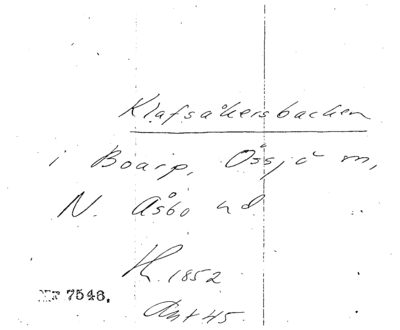 Klafsåkersbacken
i Boarp, Össjö sn,
N. Åsbo hd
H. 1852
Ant 45.
Nr 7548.